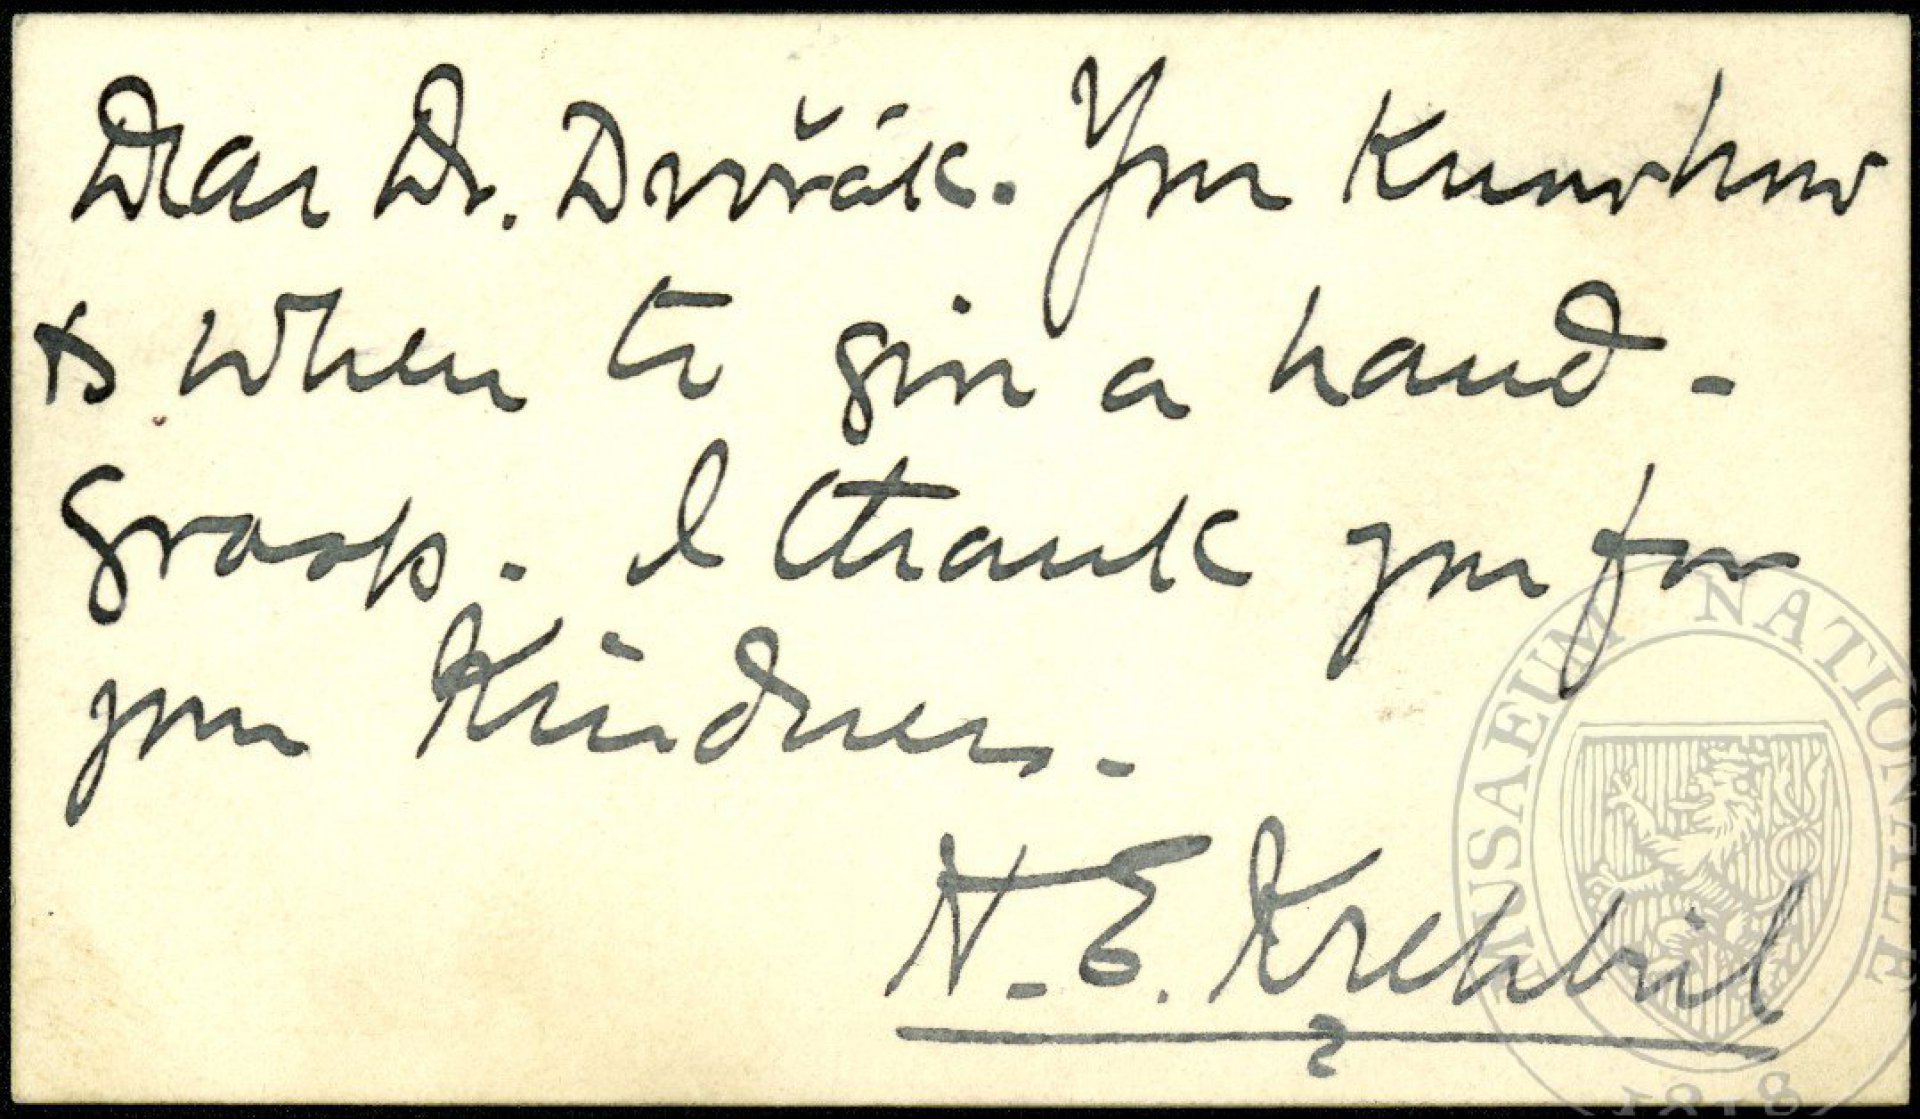 Dear Dr. Dvořák. You Know how
& when to give a hand-
grasp. I thank you for
your Kindness.
H. E. Krehbiel
MUSAEUM NATIONALE
1818